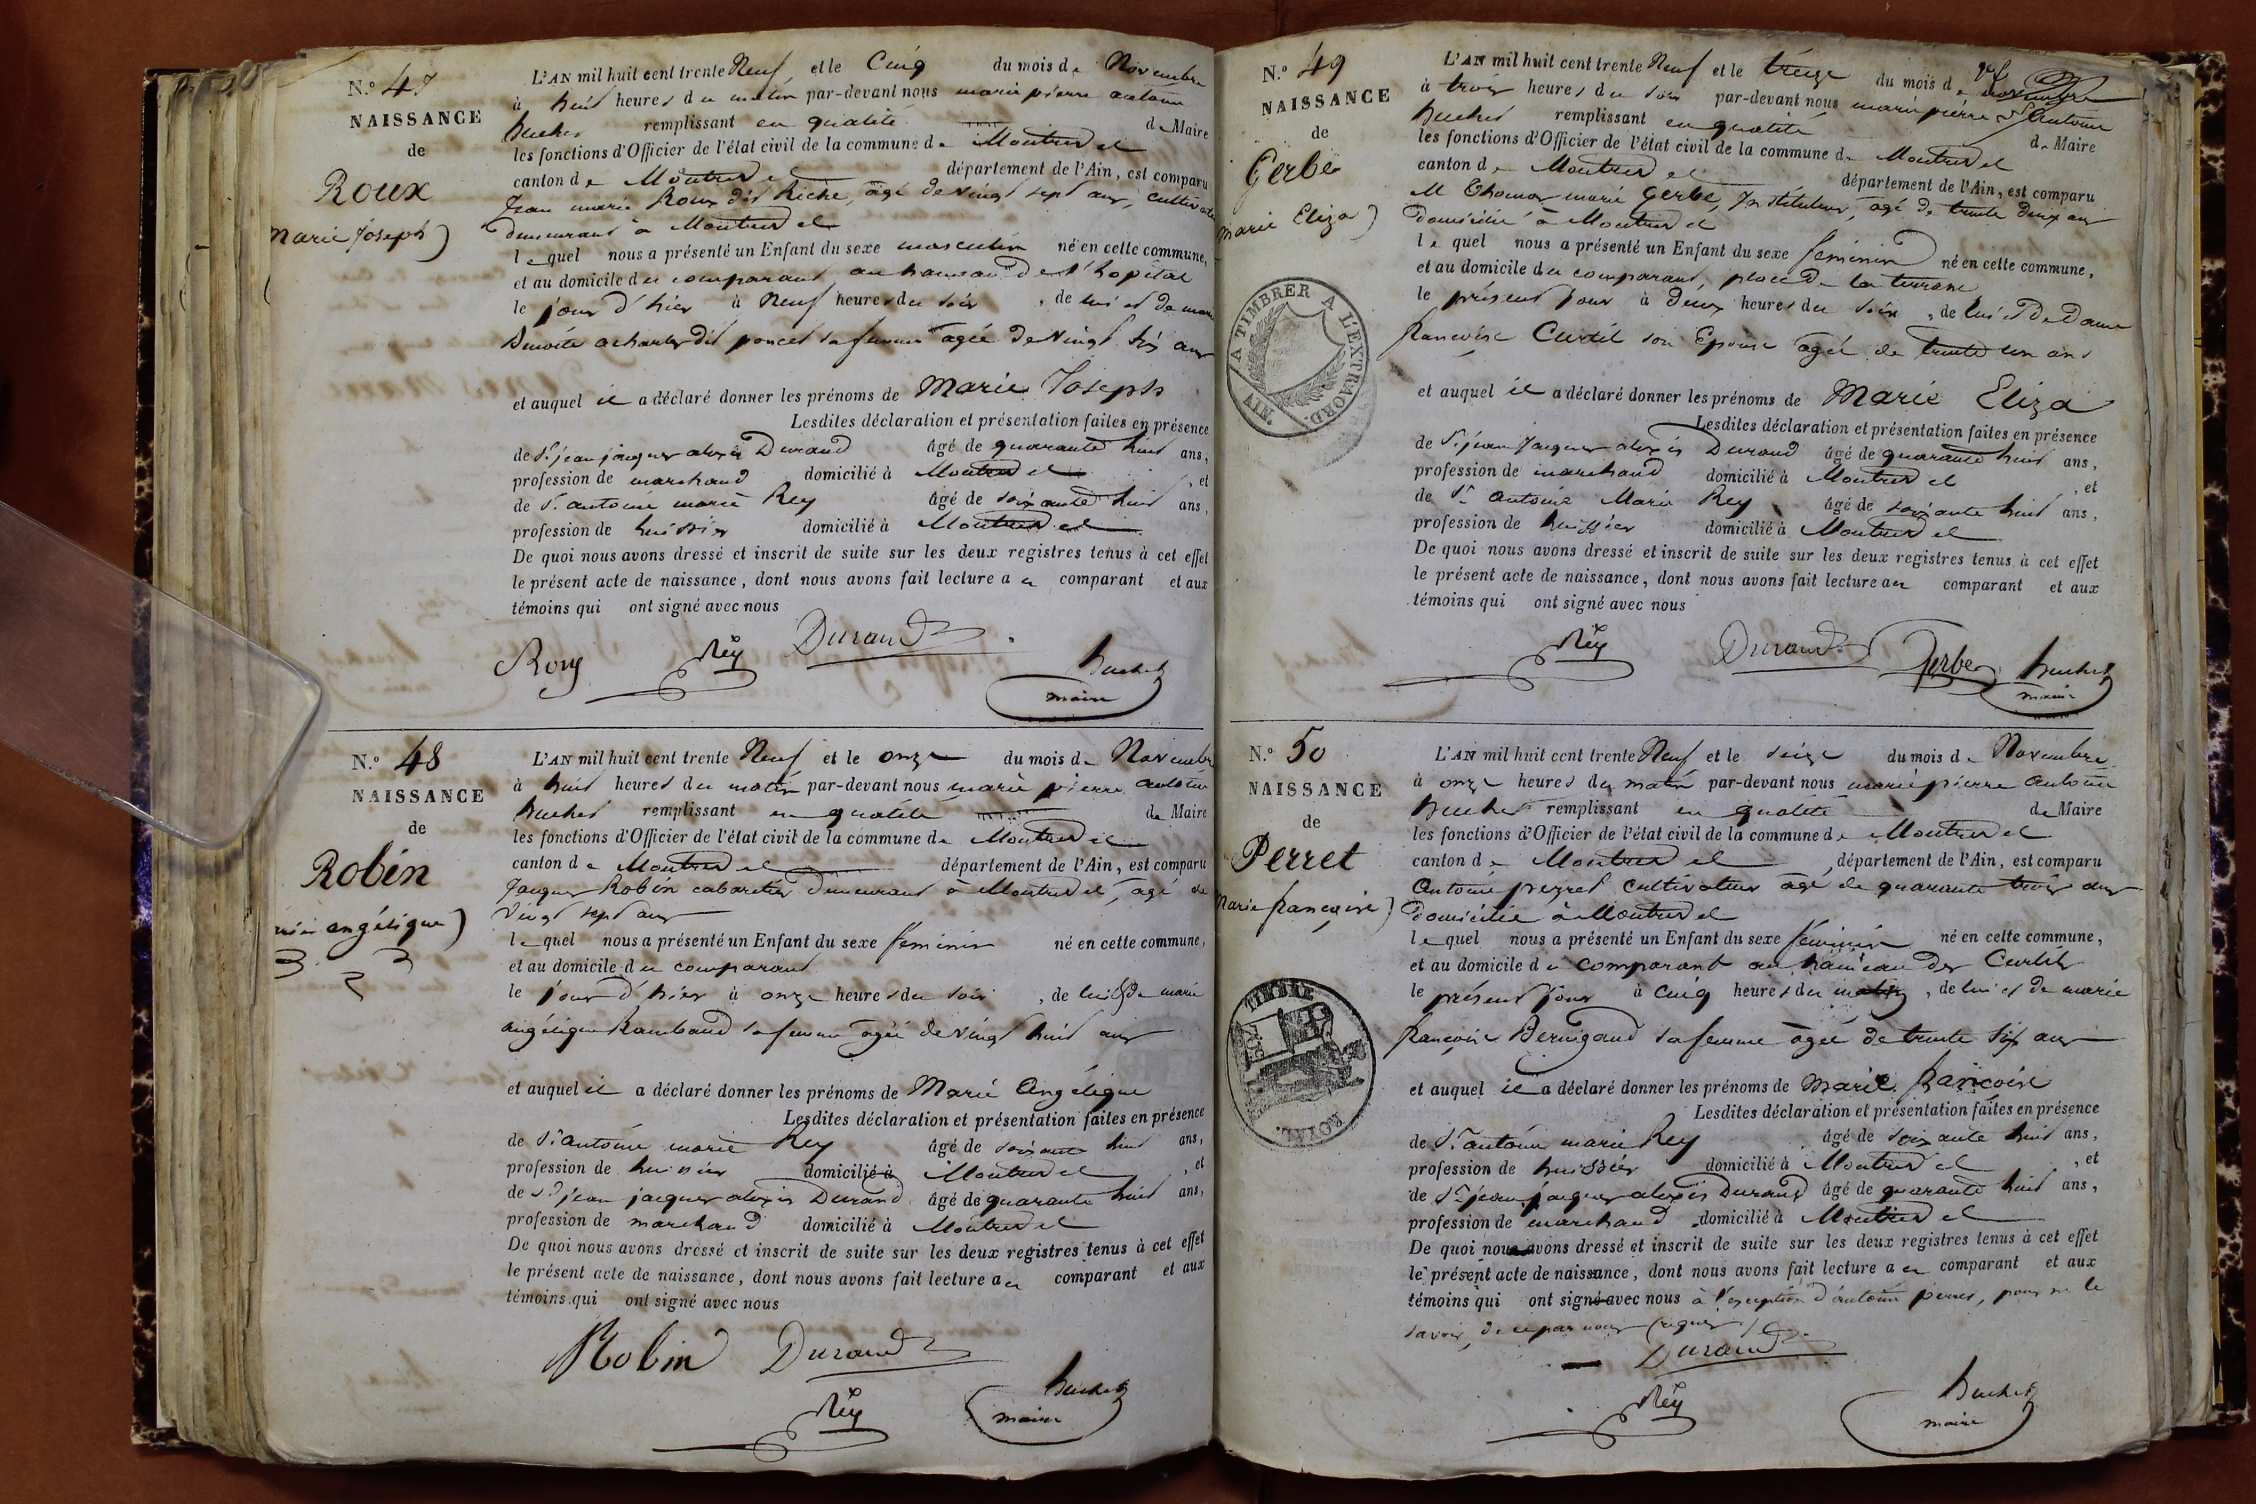 N.º 47
NAISSANCE
de
Roux
Marie Joseph)
L'AN mil huit cent trente Neuf, et le Cinq du mois de Novembre
à huit heures du matin par-devant nous marie pierre antoine
huchet remplissant en qualité de Maire
les fonctions d'Officier de l'état civil de la commune de Montrevel
canton de Montrevel département de l'Ain, est comparu
Jean marie Roux dit Riche, âgé de vingt sept ans, cultivateur
demeurant à Montrevel
lequel nous a présenté un Enfant du sexe masculin né en cette commune,
et au domicile du comparant au hameau de l'hopital
le jour d'hier à Neuf heures du soir, de lui et de marie
Benoite acharles dit poncet sa femme âgée de vingt six ans
et auquel il a déclaré donner les prénoms de Marie Joseph
Lesdites déclaration et présentation faites en présence
de Sr jean jacques alexis Durand âgé de quarante huit ans,
profession de marchand domicilié à Montrevel, et
de Sr antoine marie Rey âgé de soixante huit ans,
profession de huissier domicilié à Montrevel
De quoi nous avons dressé et inscrit de suite sur les deux registres tenus à cet effet
le présent acte de naissance, dont nous avons fait lecture au comparant et aux
témoins qui ont signé avec nous
Roux Rey Durand huchet
maire
N.º 48
NAISSANCE
de
Robin
angélique)
L'AN mil huit cent trente Neuf et le onze du mois de Novembre
à huit heures du matin par-devant nous marie pierre antoine
huchet remplissant en qualité de Maire
les fonctions d'Officier de l'état civil de la commune de Montrevel
canton de Montrevel département de l'Ain, est comparu
Jacques Robin cabaretier demeurant à Montrevel, âgé de
vingt sept ans
lequel nous a présenté un Enfant du sexe féminin né en cette commune,
et au domicile du comparant
le jour d'hier à onze heures du soir, de lui et de marie
angélique Rambaud sa femme âgée de vingt huit ans
et auquel il a déclaré donner les prénoms de Marie Angélique
Lesdites déclaration et présentation faites en présence
de Sr antoine marie Rey âgé de soixante huit ans,
profession de huissier domicilié à Montrevel, et
de Sr jean jacques alexis Durand âgé de quarante huit ans,
profession de marchand domicilié à Montrevel
De quoi nous avons dressé et inscrit de suite sur les deux registres tenus à cet effet
le présent acte de naissance, dont nous avons fait lecture au comparant et aux
témoins qui ont signé avec nous
Robin Durand
Rey huchet
maire
N.º 49
NAISSANCE
de
Gerbe
Marie Eliza)
A TIMBRER A L'EXTRAORD.
AIN.
L'AN mil huit cent trente Neuf et le treize du mois de novembre
à trois heures du soir par-devant nous marie pierre antoine
huchet remplissant en qualité de Maire
les fonctions d'Officier de l'état civil de la commune de Montrevel
canton de Montrevel département de l'Ain, est comparu
M Thomas marie Gerbe, Instituteur, âgé de trente deux ans
domicilié à Montrevel
lequel nous a présenté un Enfant du sexe féminin né en cette commune,
et au domicile du comparant, place de la terrasse
le présent jour à deux heures du soir, de lui et de Dame
françoise Curtil son Epouse âgée de trente un ans
et auquel il a déclaré donner les prénoms de Marie Eliza
Lesdites déclaration et présentation faites en présence
de Sr jean Jacques alexis Durand âgé de quarante huit ans,
profession de marchand domicilié à Montrevel, et
de Sr antoine Marie Rey âgé de soixante huit ans,
profession de huissier domicilié à Montrevel
De quoi nous avons dressé et inscrit de suite sur les deux registres tenus à cet effet
le présent acte de naissance, dont nous avons fait lecture au comparant et aux
témoins qui ont signé avec nous
Rey Durand Gerbe huchet
maire
N.º 50
NAISSANCE
de
Perret
Marie françoise)
TIMBRE
ROYAL.
L'AN mil huit cent trente Neuf et le seize du mois de Novembre
à onze heures du matin par-devant nous marie pierre antoine
huchet remplissant en qualité de Maire
les fonctions d'Officier de l'état civil de la commune de Montrevel
canton de Montrevel département de l'Ain, est comparu
Antoine perret cultivateur âgé de quarante trois ans
domicilié à Montrevel
lequel nous a présenté un Enfant du sexe féminin né en cette commune,
et au domicile du comparant au hameau des Curtils
le présent jour à cinq heures du matin, de lui et de marie
françoise Bernigaud sa femme âgée de trente six ans
et auquel il a déclaré donner les prénoms de Marie françoise
Lesdites déclaration et présentation faites en présence
de Sr antoine marie Rey âgé de soixante huit ans,
profession de huissier domicilié à Montrevel, et
de Sr jean jacques alexis Durand âgé de quarante huit ans,
profession de marchand domicilié à Montrevel
De quoi nous avons dressé et inscrit de suite sur les deux registres tenus à cet effet
le présent acte de naissance, dont nous avons fait lecture au comparant et aux
témoins qui ont signé avec nous à l'exception d'antoine perret, pour ne le
savoir, de ce par nous requis
Durand
Rey huchet
maire